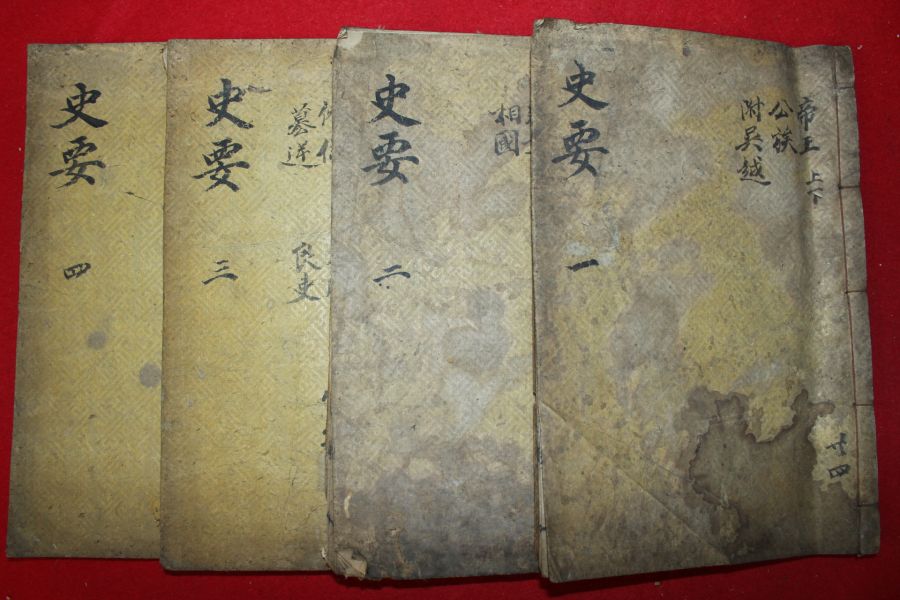 帝王 上下
公族
附吳越
史要 一
共四
相國
史要 二
民吏
史要 三
史要 四